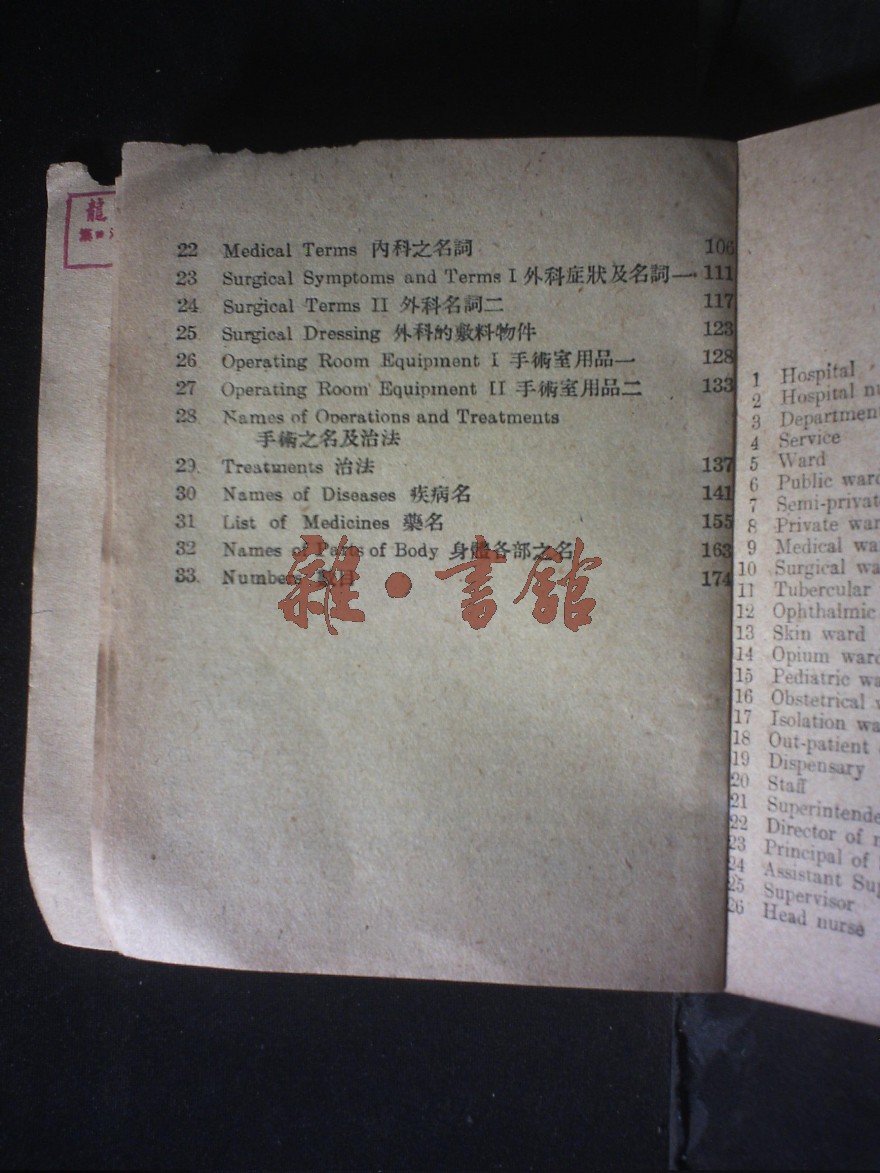 龍
22 Medical Terms 內科之名詞 106
23 Surgical Symptoms and Terms I 外科症狀及名詞一 111
24 Surgical Terms II 外科名詞二 117
25 Surgical Dressing 外科的敷料物件 123
26 Operating Room Equipment I 手術室用品一 128
27 Operating Room Equipment II 手術室用品二 133
28 Names of Operations and Treatments
手術之名及治法
29 Treatments 治法 137
30 Names of Diseases 疾病名 141
31 List of Medicines 藥名 155
32 Names of Parts of Body 身體各部之名 163
33. Numbers 數目 174
雜·書館
1 Hospital
2 Hospital
3 Department
4 Service
5 Ward
6 Public ward
7 Semi-private
8 Private
9 Medical
10 Surgical
11 Tubercular
12 Ophthalmic
13 Skin ward
14 Opium ward
15 Pediatric
16 Obstetrical
17 Isolation
18 Out-patient
19 Dispensary
20 Staff
21
22 Director of
23 Principal of
24 Assistant
25 Supervisor
26 Head nurse